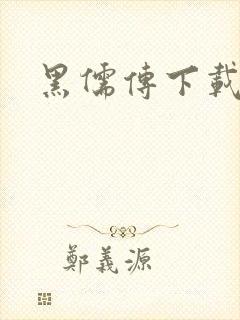 黑儒傳下載
鄭義源